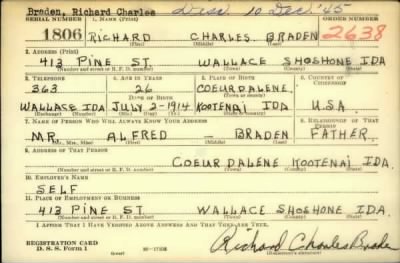 Braden, Richard Charles Disc 10 Dec '45
SERIAL NUMBER 1. NAME (Print) ORDER NUMBER
1806 RICHARD CHARLES BRADEN 2638
(First) (Middle) (Last)
2. ADDRESS (Print)
413 PINE ST WALLACE SHOSHONE IDA
(Number and street or R. F. D. number) (Town) (County) (State)
3. TELEPHONE 4. AGE IN YEARS 5. PLACE OF BIRTH 6. COUNTRY OF CITIZENSHIP
363 26 COEUR DALENE
DATE OF BIRTH (Town or county)
WALLACE IDA JULY-2-1914 KOOTENAI IDA U.S.A.
(Exchange) (Number) (Mo.) (Day) (Yr.) (State or country)
7. NAME OF PERSON WHO WILL ALWAYS KNOW YOUR ADDRESS 8. RELATIONSHIP OF THAT PERSON
MR. ALFRED — BRADEN FATHER
(Mr., Mrs., Miss) (First) (Middle) (Last)
9. ADDRESS OF THAT PERSON
COEUR DALENE KOOTENAI IDA.
(Number and street or R. F. D. number) (Town) (County) (State)
10. EMPLOYER'S NAME
SELF
11. PLACE OF EMPLOYMENT OR BUSINESS
413 PINE ST WALLACE SHOSHONE IDA.
(Number and street or R. F. D. number) (Town) (County) (State)
I AFFIRM THAT I HAVE VERIFIED ABOVE ANSWERS AND THAT THEY ARE TRUE.
REGISTRATION CARD
D. S. S. Form 1 (over) 16—17105 Richard Charles Braden
(Registrant's signature)